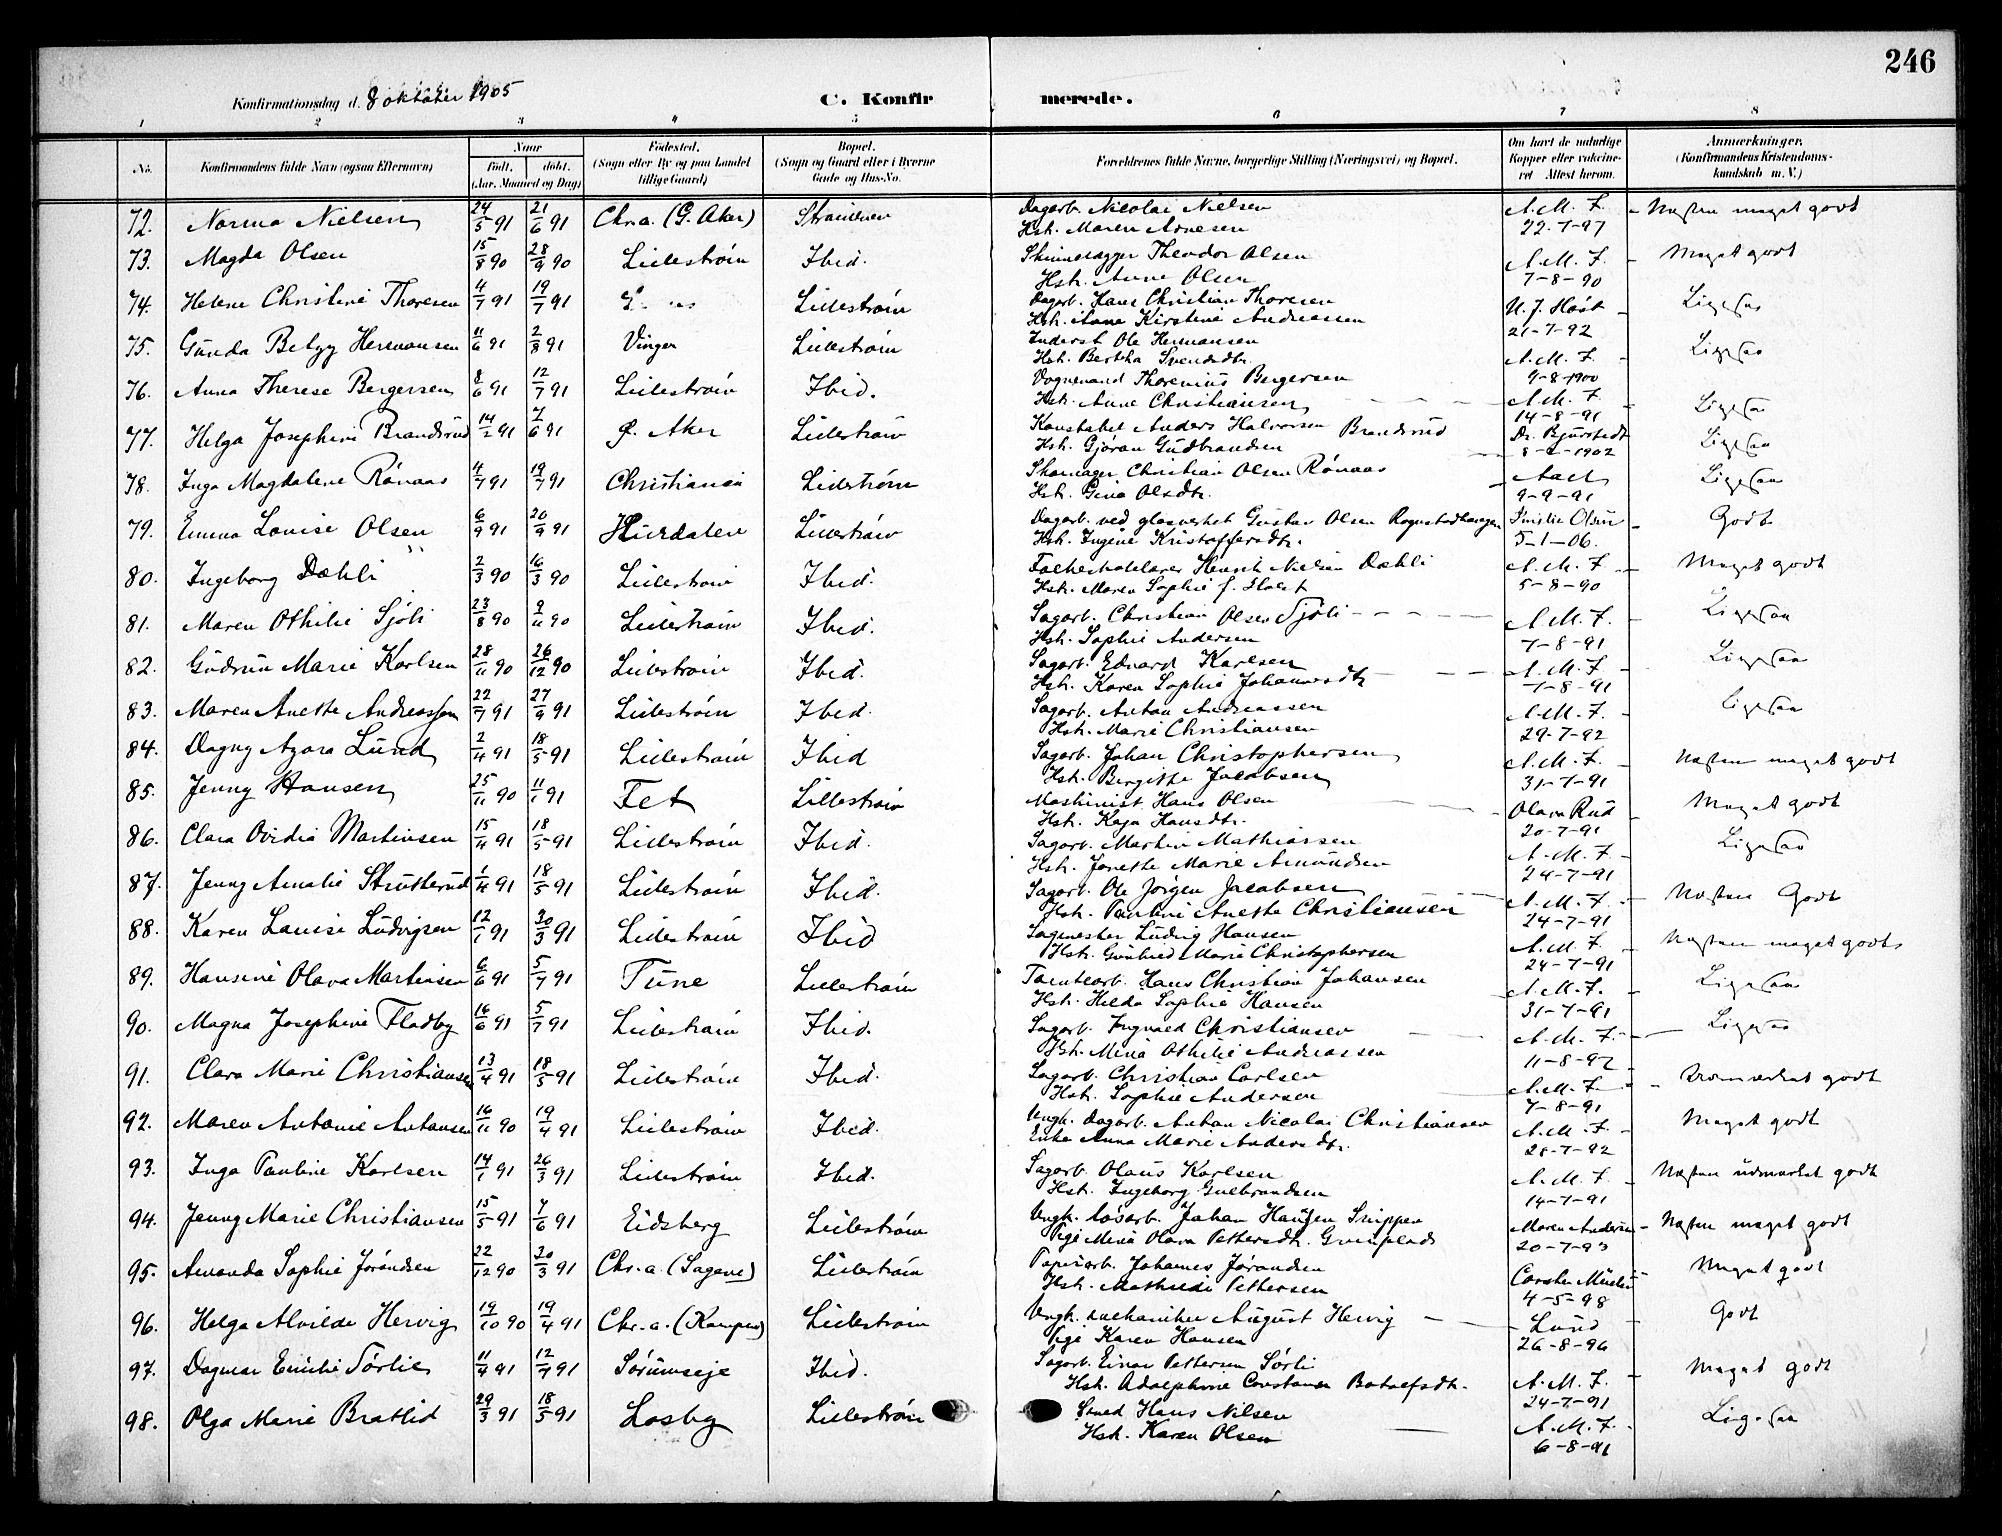 246
Konfirmationsdag d. 8 oktober 1905
C. Konfirmerede.
1 2 3 4 5 6 7 8
No. Konfirmandens fulde Navn (ogsaa Efternavn) Naar født, døbt. (Aar, Maaned og Dag) Fødested. (Sogn eller By og paa Landet tillige Gaard) Bopæl. (Sogn og Gaard eller i Byerne Gade og Hus-No. Forældrenes fulde Navne, borgerlige Stilling (Næringsvei) og Bopæl. Om havt de naturlige Kopper eller vakcineret. Attest herom. Anmærkninger. (Konfirmandens Kristendomskundskab m. V.)
72. Norma Nielsen 24/5 91 21/6 91 Chr.a. (G. Aker) Strømmen Dagarb. Nicolai Nielsen A. M. F. Næsten meget godt
Hst. Maren Arnesen 22-7-97
73. Magda Olsen 15/8 90 28/9 90 Lillestrøm Ibid. Skinnelægger Theodor Olsen A. M. F. Meget godt
Hst. Anne Olsen 7-8-90
74. Helene Christine Thoresen 4/7 91 19/7 91 Lillestrøm Dagarb. Hans Christian Thoresen N. J. Høst Ligesaa
Hst. Anne Kirstine Andreassen 21-7-92
75. Gunda Betzy Hermansen 11/6 91 2/8 91 Vinger Lillestrøm Inderst Ole Hermansen A. M. F. Ligesaa
Hst. Bertha Svendsdtr. 9-8-1900
76. Anna Therese Bergersen 8/6 91 12/7 91 Lillestrøm Ibid. Vognmand Thorenius Bergersen A. M. F. Ligesaa
Hst. Anne Christiansen 14-8-91
77. Helga Josephine Brandsrud 14/2 91 7/6 91 G. Aker Lillestrøm Konstabel Anders Halvorsen Brandsrud Dr. Bjørstedt Ligesaa
Hst. Gjøran Gudbrandsen 8-2-1902
78. Inga Magdalene Rønaas 4/7 91 19/7 91 Christiania Lillestrøm Skomager Christian Olsen Rønaas Aach Ligesaa
Hst. Gina Olsdtr. 9-9-91
79. Emma Louise Olsen 6/9 91 20/9 91 Hurdalen Lillestrøm Dagarb. ved glasverket Gustav Olsen Rognstadhaugen Emilie Olsen Godt
Hst. Ingine Kristoffersdtr. 5-1-06.
80. Ingeborg Dæhli 2/3 90 16/3 90 Lillestrøm Ibid. Henrik Nielsen Dæhli A. M. F. Meget godt
Hst. Maren Sophie f. Holst 5-8-90
81. Maren Othilie Sjøli 23/8 90 9/11 90 Lillestrøm Ibid. Sagarb. Christian Olsen Sjøli A. M. F. Ligesaa
Hst. Sophie Andersen 7-8-91
82. Gudrun Marie Karlsen 28/11 90 26/12 90 Lillestrøm Ibid. Sagarb. Edvard Karlsen A. M. F. Ligesaa
Hst. Karen Sophie Johannesdtr 7-8-91
83. Maren Anette Andreassen 22/7 91 27/9 91 Lillestrøm Ibid. Sagarb. Anton Andreassen A. M. F. Ligesaa
Hst. Marie Christiansen 29-7-92
84. Dagny Azora Lund 2/4 91 18/5 91 Lillestrøm Ibid Sagarb. Johan Christophersen A. M. F. Næsten meget godt
Hst. Bergitte Jacobsen 31-7-91
85. Jenny Hansen 25/11 90 11/1 91 Fet Lillestrøm Maskinist Hans Olsen Olava Rud Meget godt
Hst. Kaja Hansdtr. 20-7-91
86. Clara Ovidia Martinsen 15/4 91 18/5 91 Lillestrøm Ibid. Sagarb. Martin Mathiassen A. M. F. Ligesaa
Hst. Jonette Marie Amundsen 24-7-91
87. Jenny Amalie Strutterud 1/4 91 18/5 91 Lillestrøm Ibid. Sagarb. Ole Jørgen Jacobsen A. M. F. Næsten Godt
Hst. Pauline Anette Christiansen 24-7-91
88. Karen Louise Ludvigsen 12/1 91 30/3 91 Lillestrøm Ibid Sagmester Ludvig Hansen A. M. F. Næsten meget godt
Hst. Gunhild Marie Christophersen 24-7-91
89. Hansine Olava Martinsen 6/6 91 5/7 91 Tune Lillestrøm Tomtearb. Hans Christian Johansen A. M. F. Ligesaa
Hst. Hilda Sophie Hansen 31-7-91
90. Magna Josephine Fladby 16/6 91 5/7 91 Lillestrøm Ibid. Sagarb. Ingvald Christiansen A. M. F. Ligesaa
Hst. Mina Othilie Andreassen 11-8-92
91. Clara Marie Christiansen 13/4 91 18/5 91 Lillestrøm Ibid. Sagarb. Christian Carlsen A. M. F. Udmærket godt
Hst. Sophie Andersen 7-8-91
92. Maren Antonie Antonsen 16/11 90 19/4 91 Lillestrøm Ibid. Ungk. Dagarb. Anton Nicolai Christiansen A. M. F. Meget godt
Enke Anna Marie Andersdtr. 28-7-92
93. Inga Pauline Karlsen 14/1 91 26/3 91 Lillestrøm Ibid. Sagarb. Olaus Karlsen A. M. F. Næsten udmærket godt
Hst. Ingeborg Gulbrandsen 14-7-91
94. Jenny Marie Christiansen 15/5 91 7/6 91 Eidsberg Lillestrøm Ungk. løsarb. Johan Hansen Snippen Maren Andersen Næsten meget godt
Pige Mina Olava Pettersdtr. 20-7-93
95. Amanda Sophie Jørandsen 22/12 90 30/3 91 Chr.a. (Sagene) Lillestrøm Papirarb. Johannes Jørandsen Carsten Meget godt
Hst. Mathilde Pettersen 4-5-98
96. Helga Alvilde Hervig 19/10 90 19/4 91 Chr.a. (Kampen) Lillestrøm Ungk. mekaniker August Hervig Lund Godt
Pige Karen Hansen 26-8-96
97. Dagmar Emilie Sørlie 11/4 91 12/7 91 Sørumseje Ibid. Sagarb. Einar Pettersen Sørli A. M. F. Meget godt
Hst. Adolphine Constance Botolfsdt. 24-7-91
98. Olga Marie Bratlid 29/3 91 18/5 91 Losby Lillestrøm Smed Hans Nilsen A. M. F. Ligesaa
Hst. Karen Olsen 6-8-91